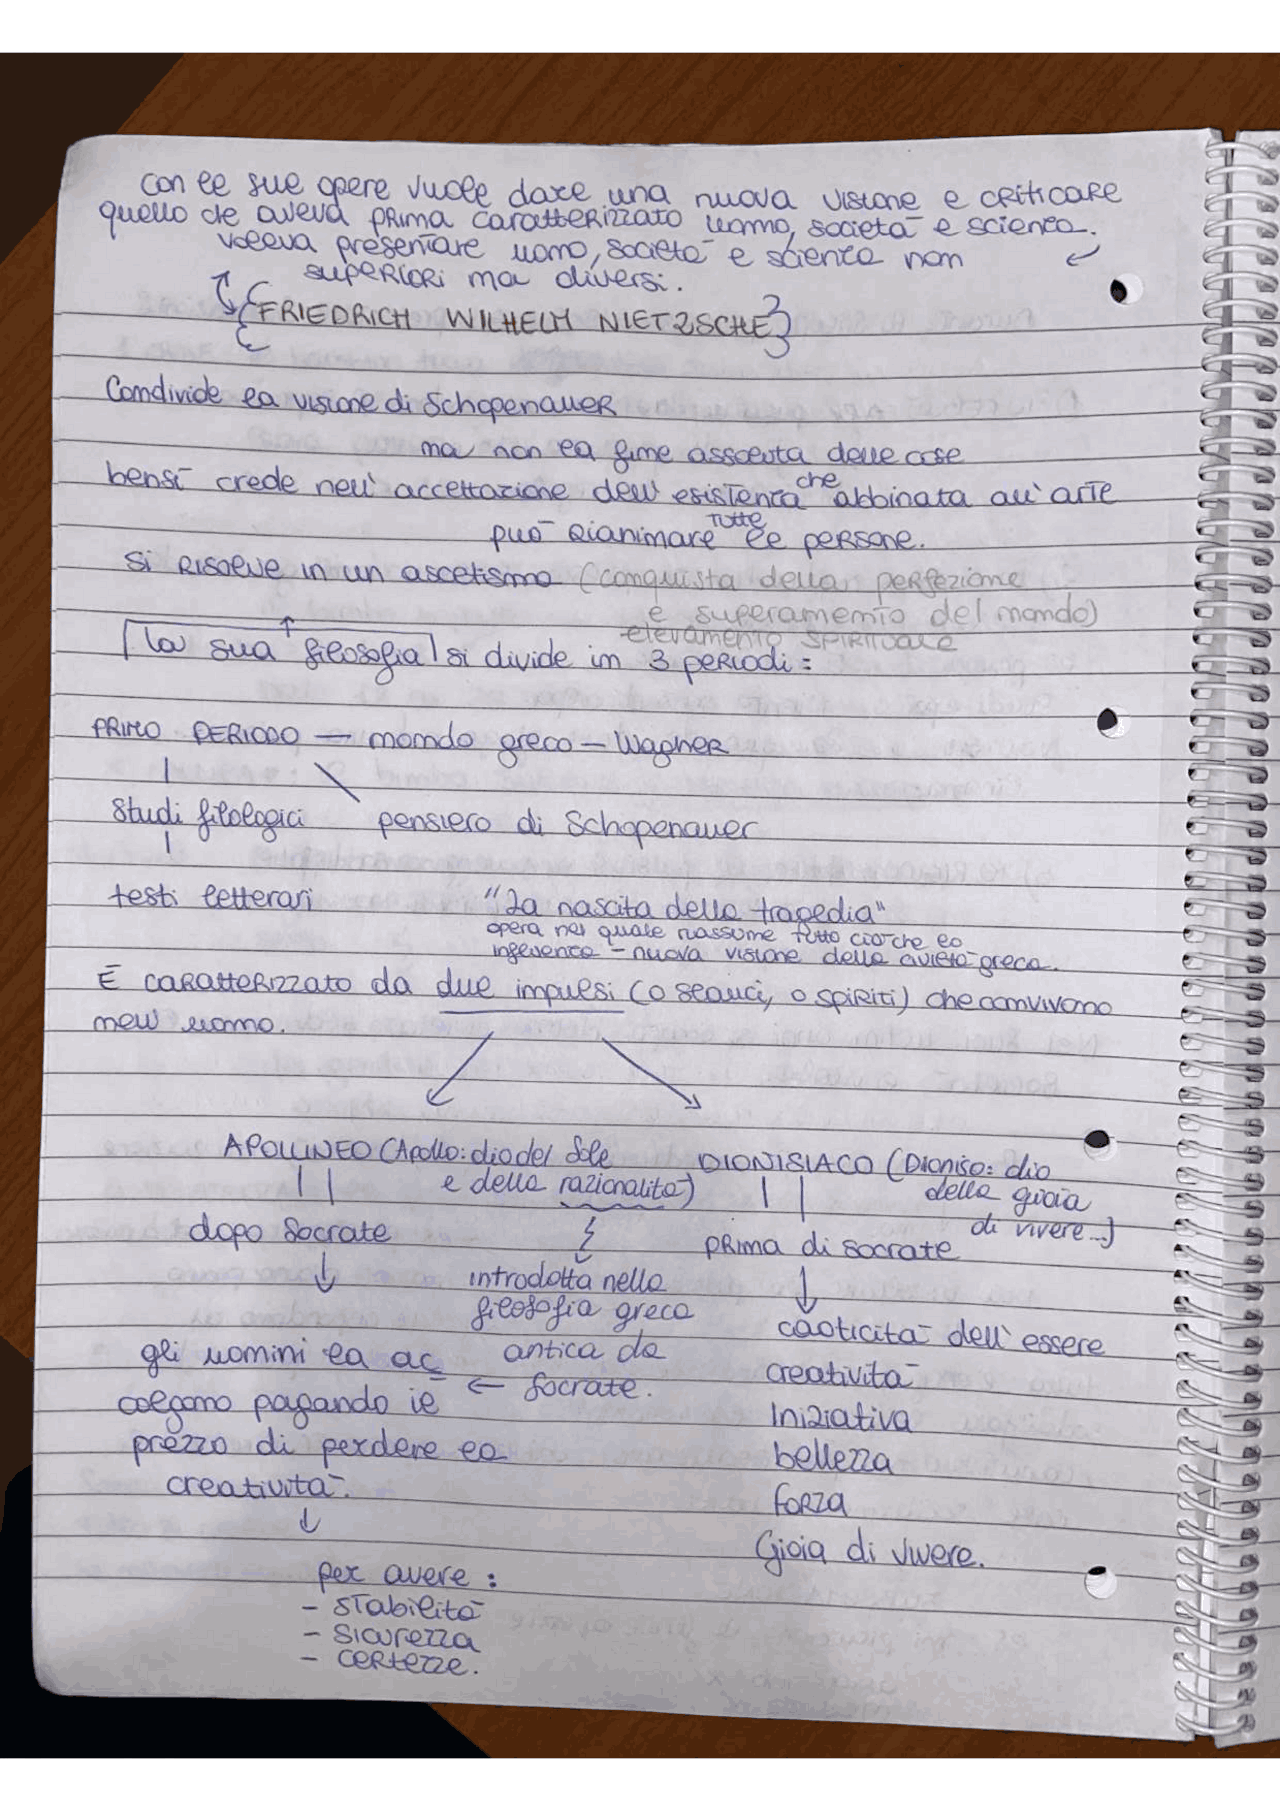 con le sue opere vuole dare una nuova visione e criticare
quello che aveva prima caratterizzato uomo, società e scienza.
voleva presentare uomo, società e scienza non
superiori ma diversi.
FRIEDRICH WILHELM NIETZSCHE
Condivide la visione di Schopenauer
ma non la fine assoluta delle cose
bensì crede nell'accettazione dell'esistenza che abbinata all'arte
può rianimare tutte le persone.
si risolve in un ascetismo (conquista della perfezione
e superamento del mondo)
elevamento SPIRITUALE
la sua filosofia si divide in 3 periodi:
PRIMO PERIODO → mondo greco - Wagner
Studi filologici pensiero di Schopenauer
testi letterari "La nascita della tragedia"
opera nel quale riassume tutto ciò che lo
influenza - nuova visione della civiltà greca.
È caratterizzato da due impulsi (o slanci, o spiriti) che convivono
nell uomo.
APOLLINEO (Apollo: dio del Sole
e della razionalità)
DIONISIACO (Dioniso: dio
della gioia
di vivere...)
dopo Socrate
prima di socrate
introdotta nella
filosofia greca
antica da
Socrate.
gli uomini la ac
colgono pagando il
prezzo di perdere la
creatività.
per avere:
- stabilità
- sicurezza
- certezze.
caoticità dell'essere
creatività
Iniziativa
bellezza
forza
Gioia di vivere.